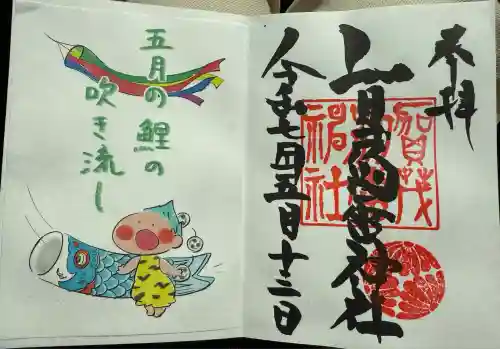 奉拝
賀茂別雷神社
令和七年五月十二日
賀茂
別雷
神社
五月の鯉の
吹き流し